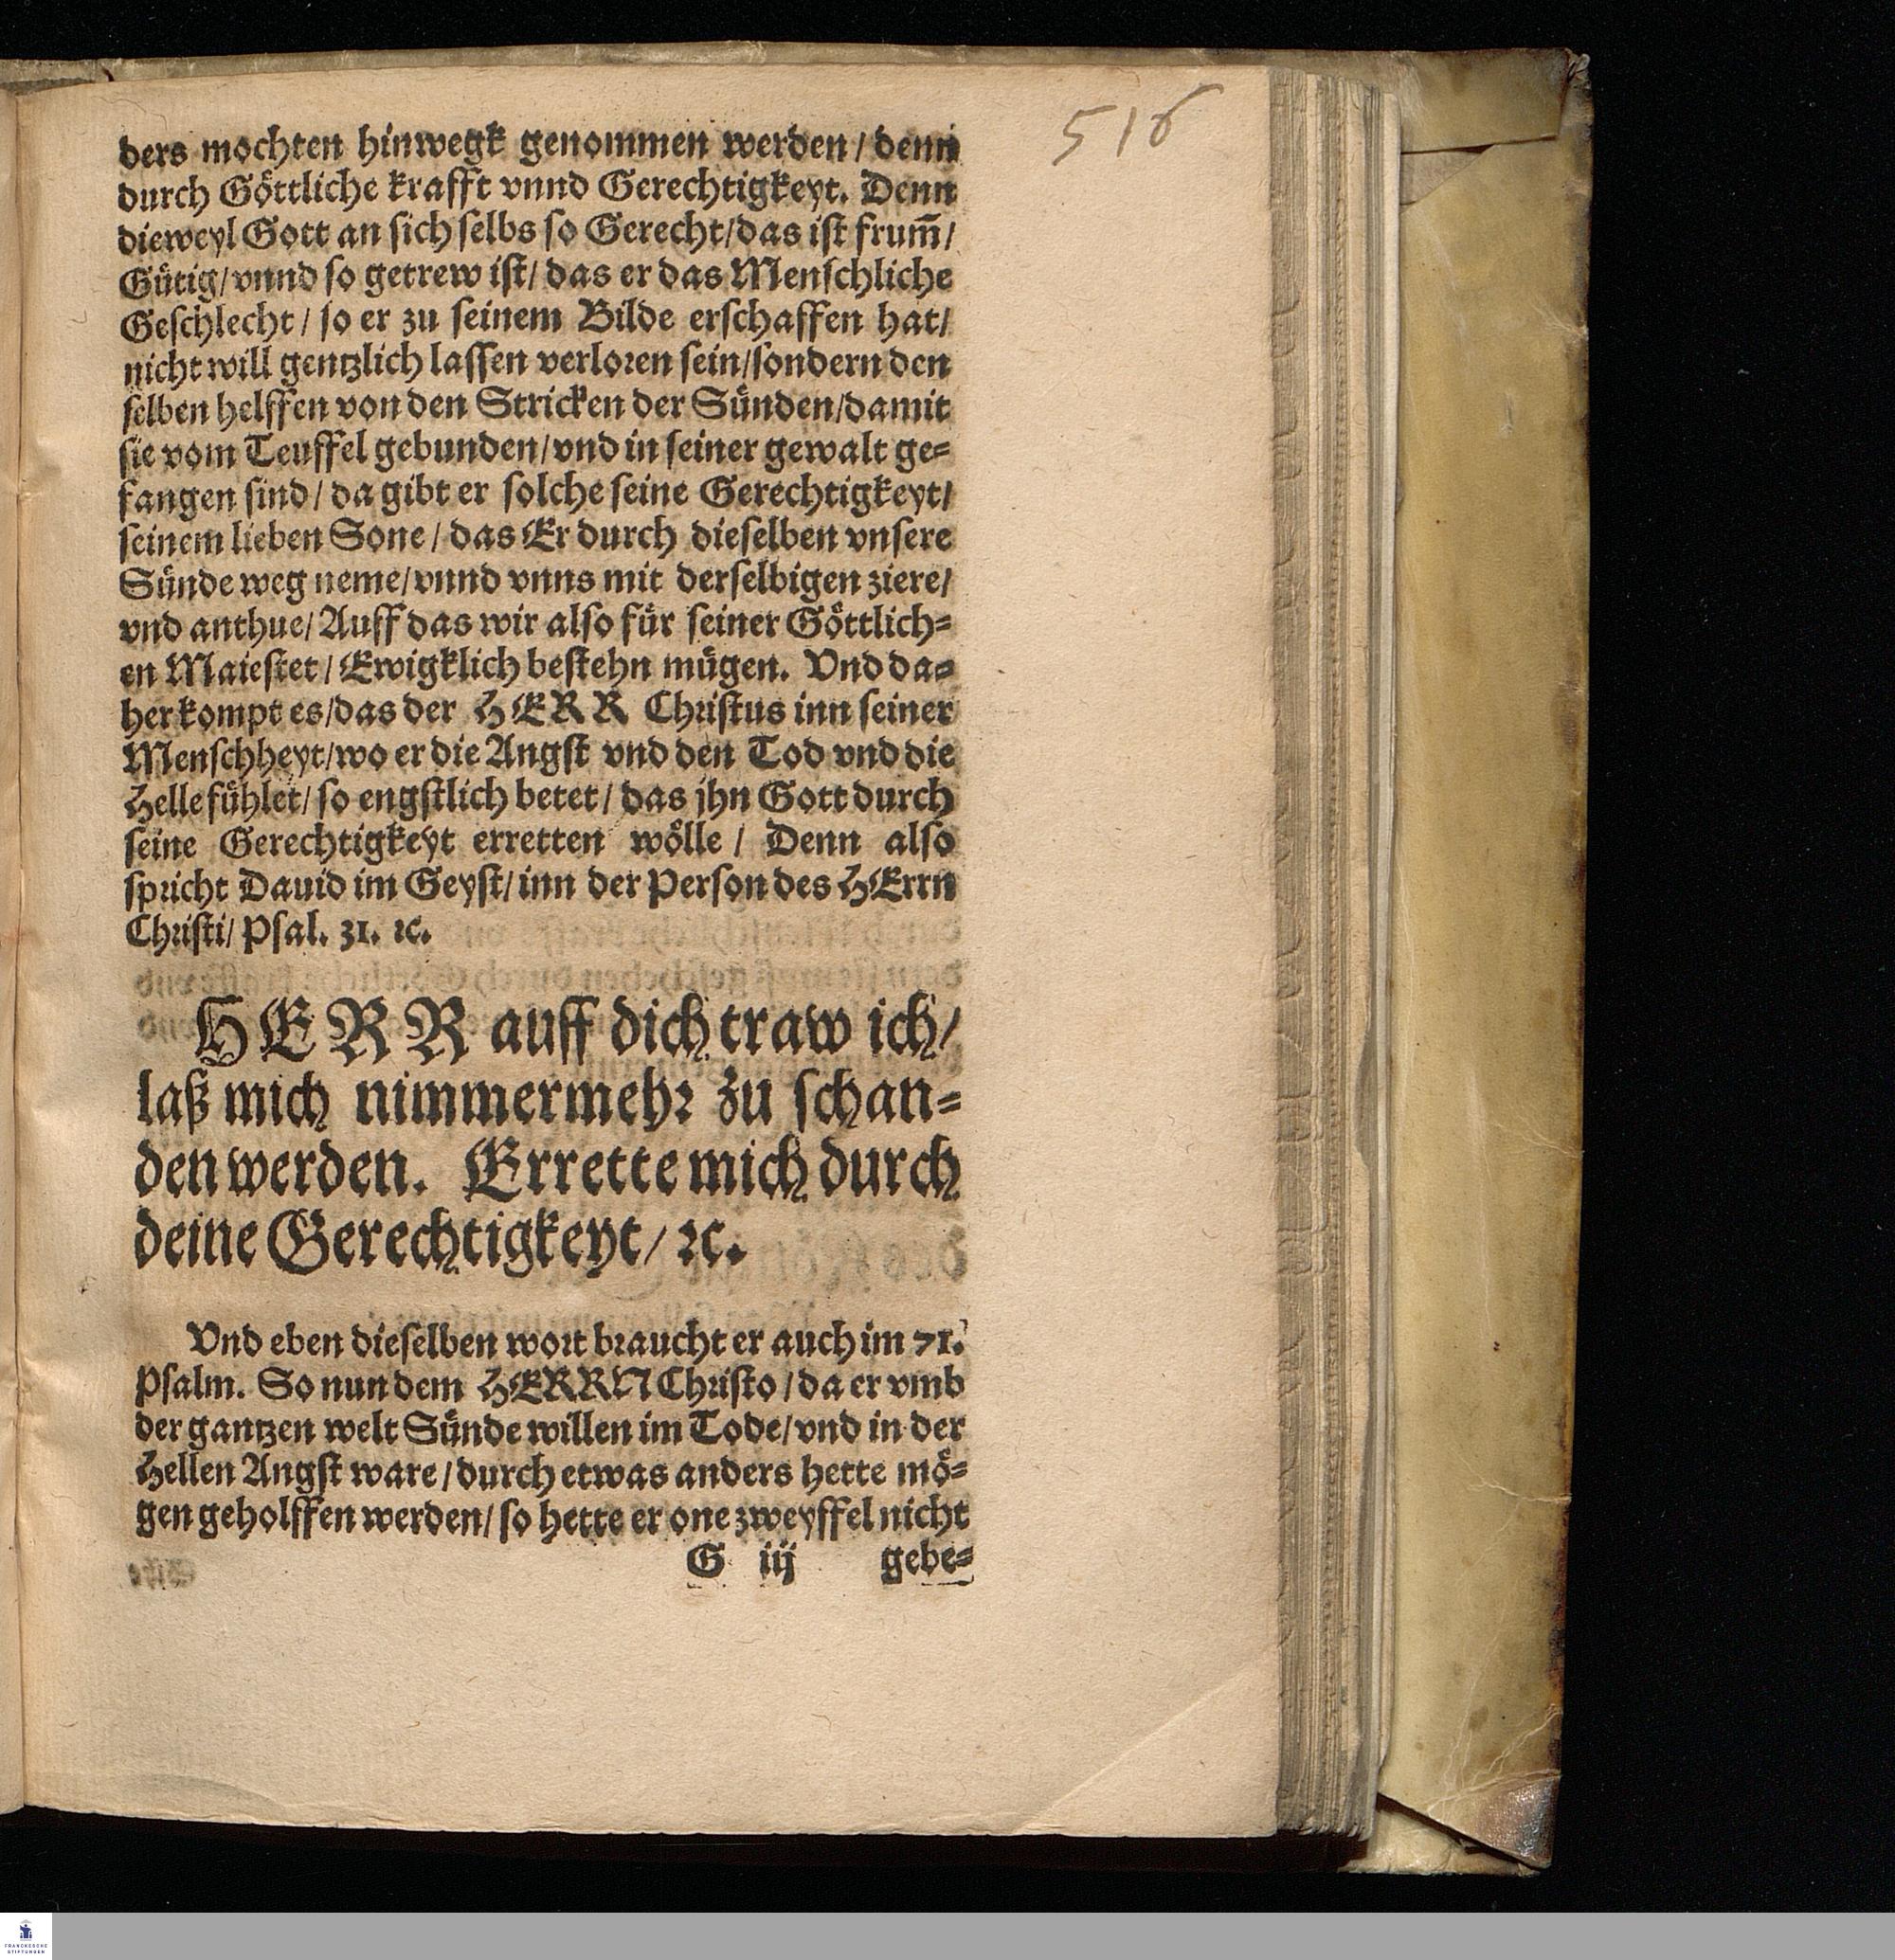 516
ders mochten hinwegk genommen werden / denn
durch Göttliche krafft vnnd Gerechtigkeyt. Denn
dieweyl Gott an sich selbs so Gerecht/das ist frum̃/
Gütig/vnnd so getrew ist/ das er das Menschliche
Geschlecht / so er zu seinem Bilde erschaffen hat/
nicht will gentzlich lassen verloren sein/sondern den
selben helffen von den Stricken der Sünden/damit
sie vom Teuffel gebunden/vnd in seiner gewalt ge=
fangen sind / da gibt er solche seine Gerechtigkeyt/
seinem lieben Sone / das Er durch dieselben vnsere
Sünde weg neme/vnnd vnns mit derselbigen ziere/
vnd anthue/ Auff das wir also für seiner Göttlich=
en Maiestet / Ewigklich bestehn mügen. Vnd da=
her kompt es/das der HERR Christus inn seiner
Menschheyt/wo er die Angst vnd den Tod vnd die
Helle fühlet/ so engstlich betet / das jhn Gott durch
seine Gerechtigkeyt erretten wölle / Denn also
spricht Dauid im Geyst/ inn der Person des HErrn
Christi/ Psal. 31. ꝛc.
HERR auff dich traw ich/
laß mich nimmermehr zu schan=
den werden. Errette mich durch
deine Gerechtigkeyt/ ꝛc.
Vnd eben dieselben wort braucht er auch im 71.
Psalm. So nun dem HERRN Christo / da er vmb
der gantzen welt Sünde willen im Tode/vnd in der
Hellen Angst ware / durch etwas anders hette mö=
gen geholffen werden/ so hette er one zweyffel nicht
G iij gebe=
FRANCKESCHE
STIFTUNGEN